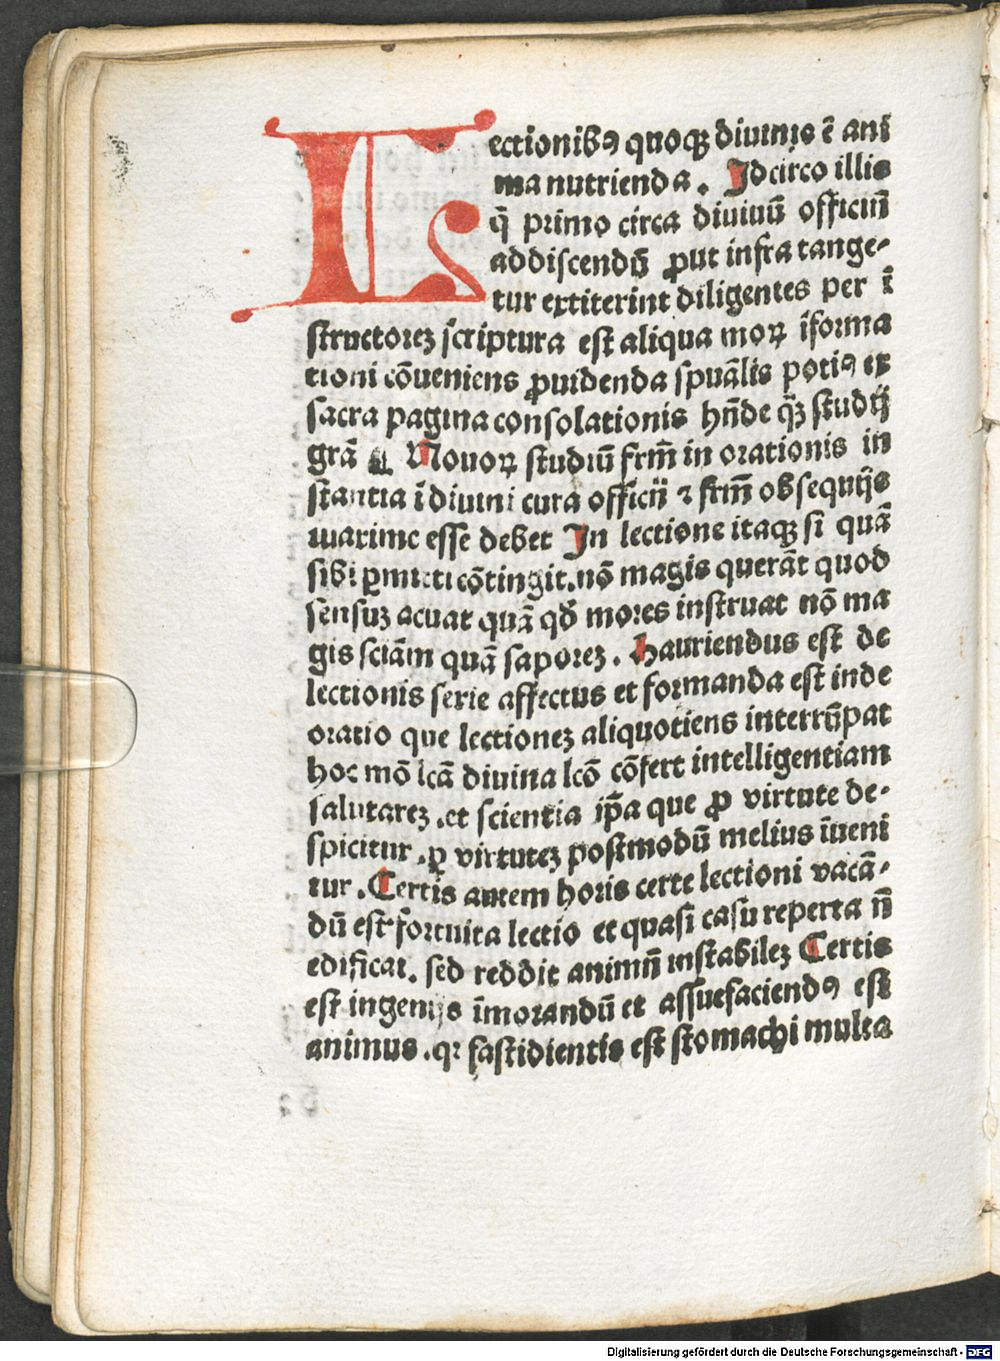 Lectionibꝯ quoqꝫ diuinis ē ani
ma nutrienda. Idcirco illis
q̄ primo circa diuinū officiū
addiscendū ꝓut infra tange-
tur extiterint diligentes per ī
structoreꝫ scriptura est aliqua moꝝ īforma
tioni cōueniens ꝓuidenda spūalis potiꝯ ex
sacra pagina consolationis hn̄de qꝫ studij
grā ¶ Nouoꝝ studiū frm̄ in orationis in
stantia ī diuini cura officij ⁊ frm̄ obsequijs
maxime esse debet In lectione itaqꝫ si quā
sibi ꝑmitti cōtingit. nō magis querāt quod
sensuꝫ acuat quā qd̄ mores instruat nō ma
gis sciām quā saporeꝫ. Hauriendus est de
lectionis serie affectus et formanda est inde
oratio que lectioneꝫ aliquotiens interrūpat
hoc mō lcā diuina lcō cōfert intelligentiam
salutareꝫ. et scientia ip̄a que ꝓ virtute de-
spicitur. ꝑ virtuteꝫ postmodū melius īueni
tur. Certis autem horis certe lectioni vacā-
dū est fortuita lectio et quasi casu reperta n̄
edificat. sed reddit animū instabileꝫ Certis
est ingenijs īmorandū et assuefaciendꝯ est
animus. qꝛ fastidientis est stomachi multa
Digitalisierung gefördert durch die Deutsche Forschungsgemeinschaft - DFG